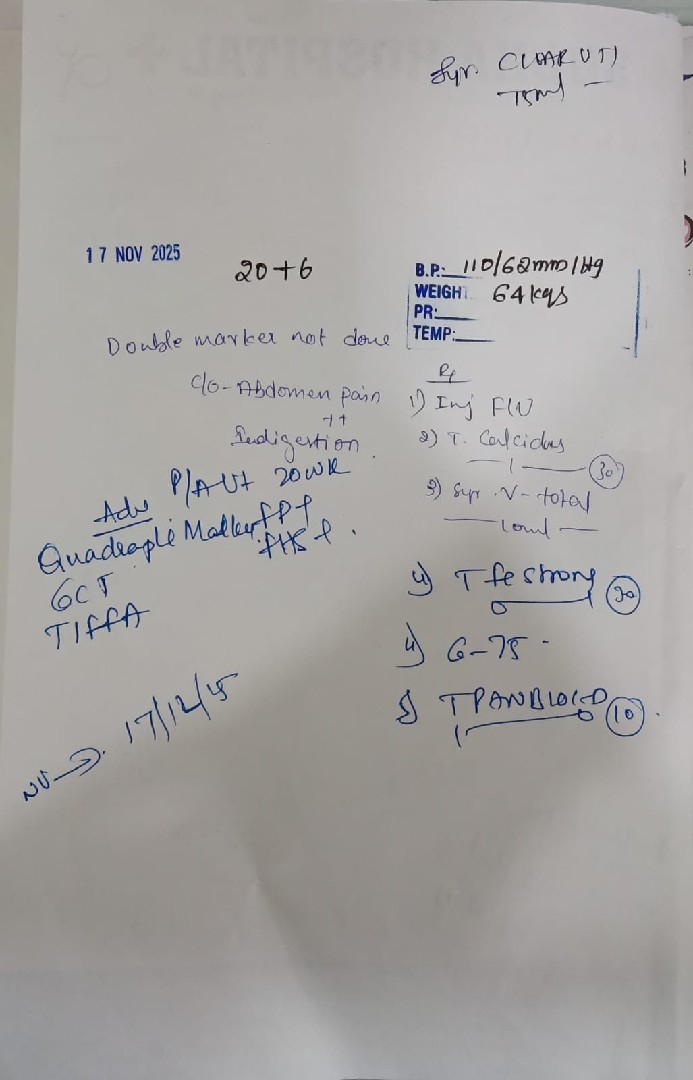 Syr. CLEAR UTI
75ml —
17 NOV 2025
20+6
B.P.: 110/62mm/Hg
WEIGH 64 kgs
PR:
TEMP:
Double marker not done
C/O - Abdomen pain
++
Indigestion.
Adv P/A Ut 20 WK
Quadraple Marker FPF
FHS +.
GCT
TIFFA
NV → 17/12/25
Rx
1) Inj
2) T. Calcidas
— 1 — 30
3) Syr. V-total
— 10ml —
4) T fe strong 30
0 1
4) G-75 -
5) T PANBLOC-D 10.
1 0